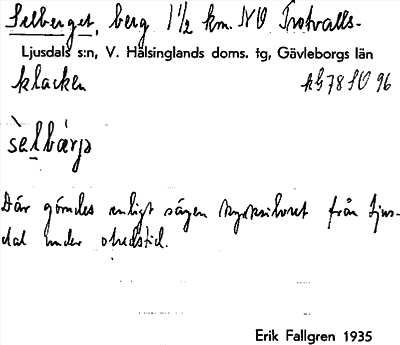 Selberget, berg 1 1/2 km. NO Trotvalls-
Ljusdals s:n, V. Hälsinglands doms. tg, Gävleborgs län
klacken kG 78 SO 96
sèlbærjə
Där gömdes enligt sägen kyrksilvret från Ljus-
dal under ofredstid.
Erik Fallgren 1935